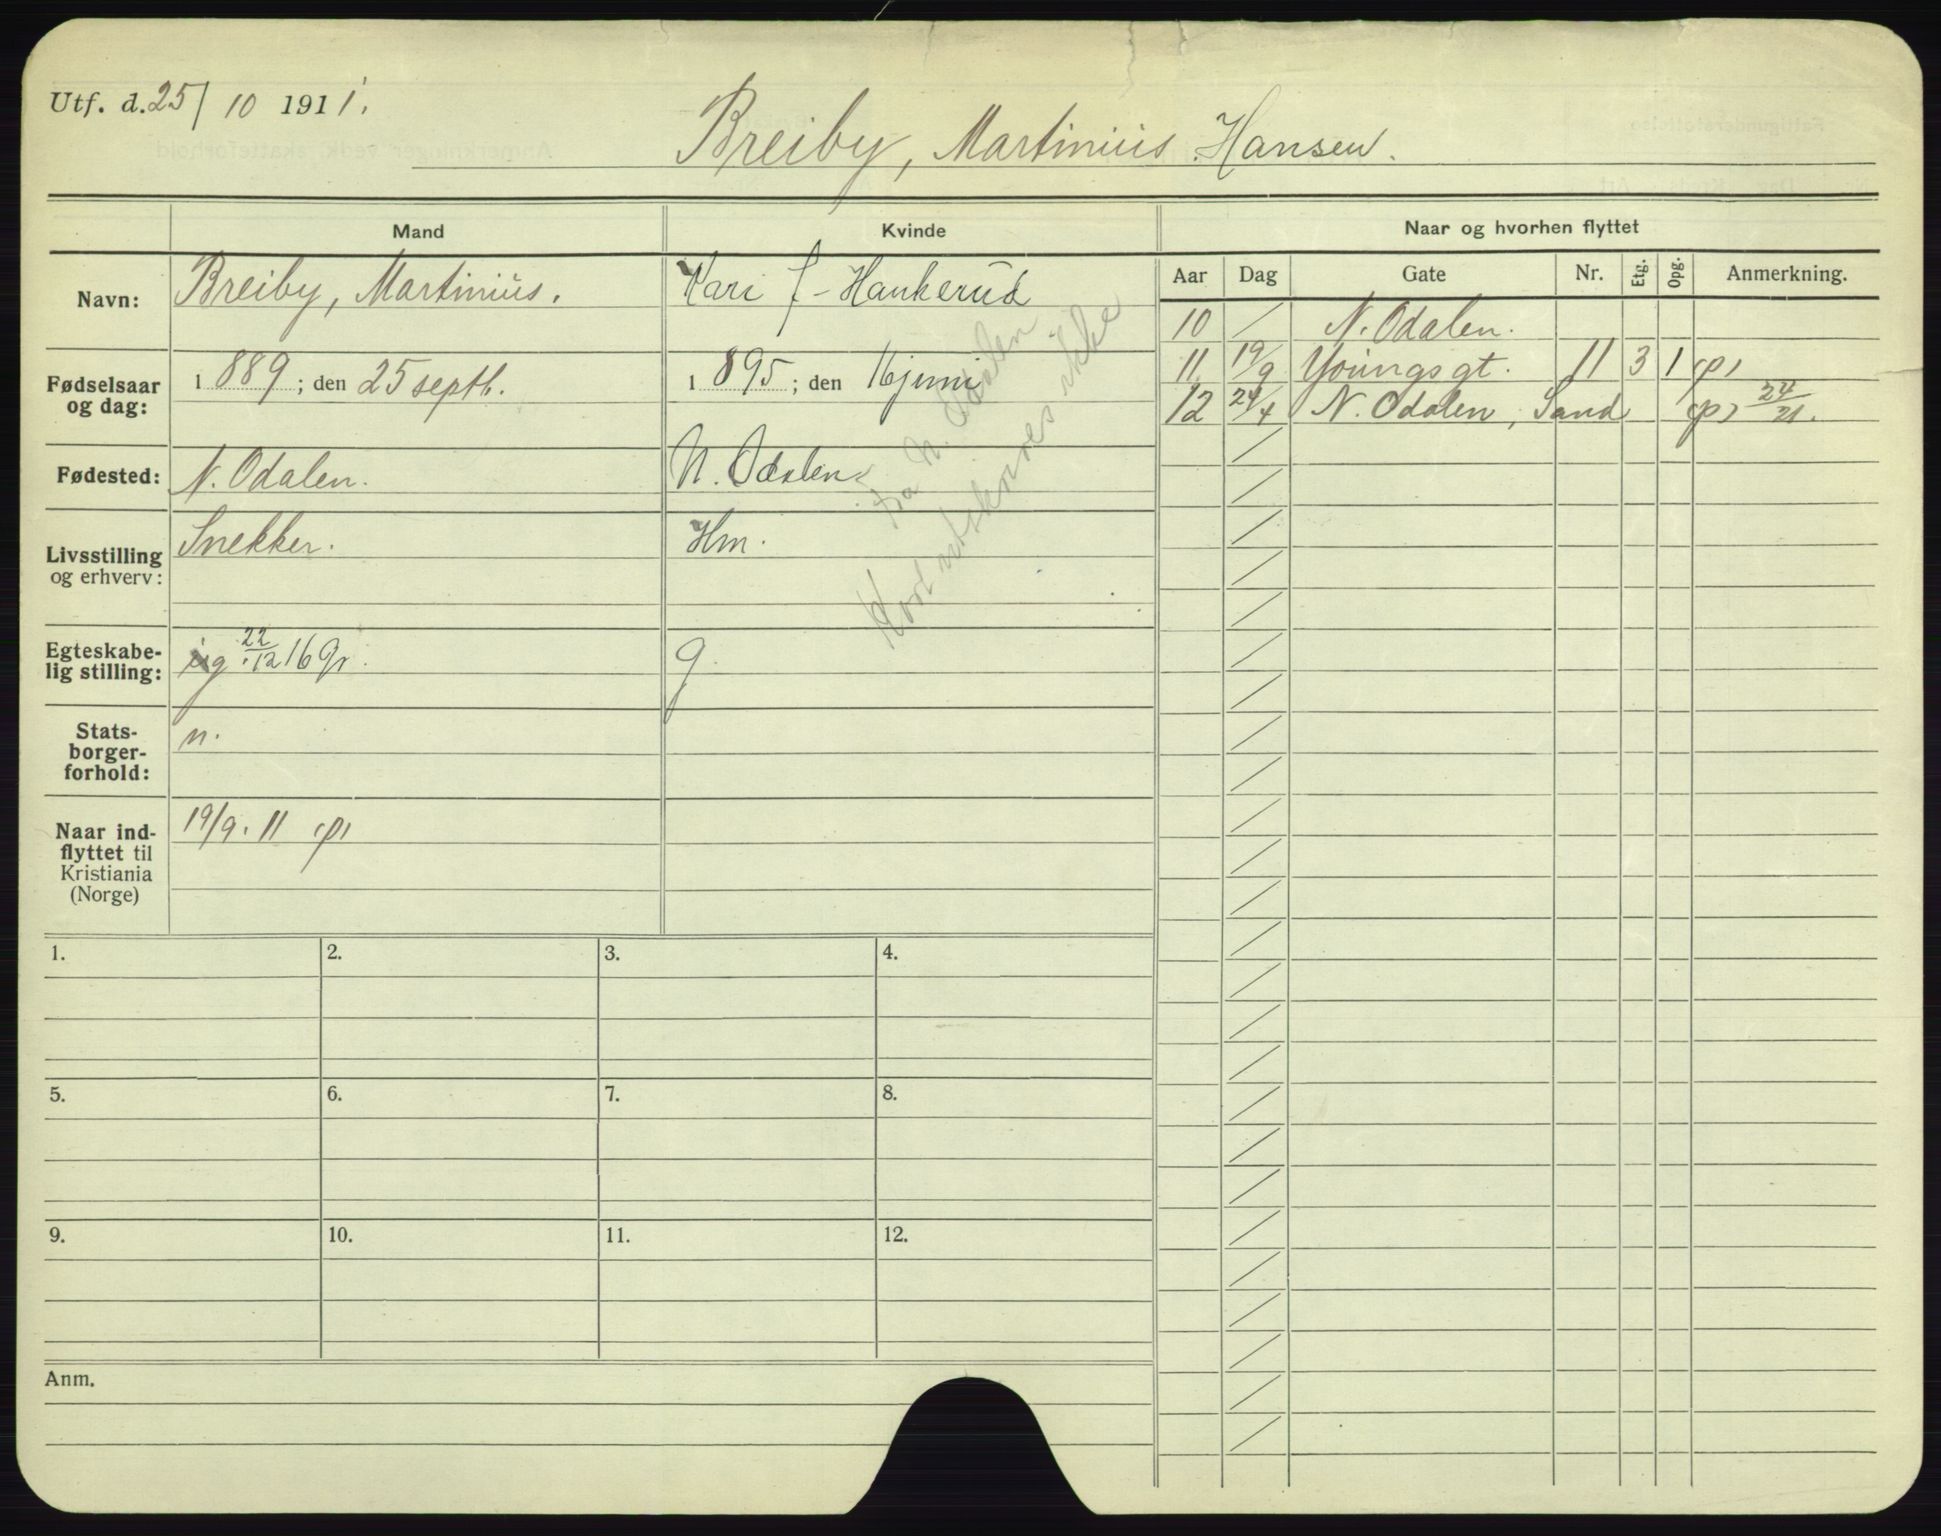 Utf. d. 25/10 1911.
Breiby, Martinius Hansen.
Mand
Kvinde
Naar og hvorhen flyttet
Navn:
Breiby, Martinius.
Kari f- Haukerud
Fødselsaar og dag:
1889; den 25 septb.
1895; den 16 juni
Fødested:
N. Odalen.
N. Odalen
Livsstilling og erhverv:
Snekker.
Hm.
Egteskabe-
lig stilling:
ug 22/12 16 gr.
g.
Stats-
borger-
forhold:
n.
Naar ind-
flyttet til
Kristiania
(Norge)
19/9. 11 (p)
fra N. Odalen
Kort utskrives ikke
Aar Dag Gate Nr. Etg. Opg. Anmerkning.
10 / N. Odalen.
11 19/9 Youngsgt. 11 3 1 (p)
12 24/4 N. Odalen, Sand (p) 24/21.
1. 2. 3. 4.
5. 6. 7. 8.
9. 10. 11. 12.
Anm.